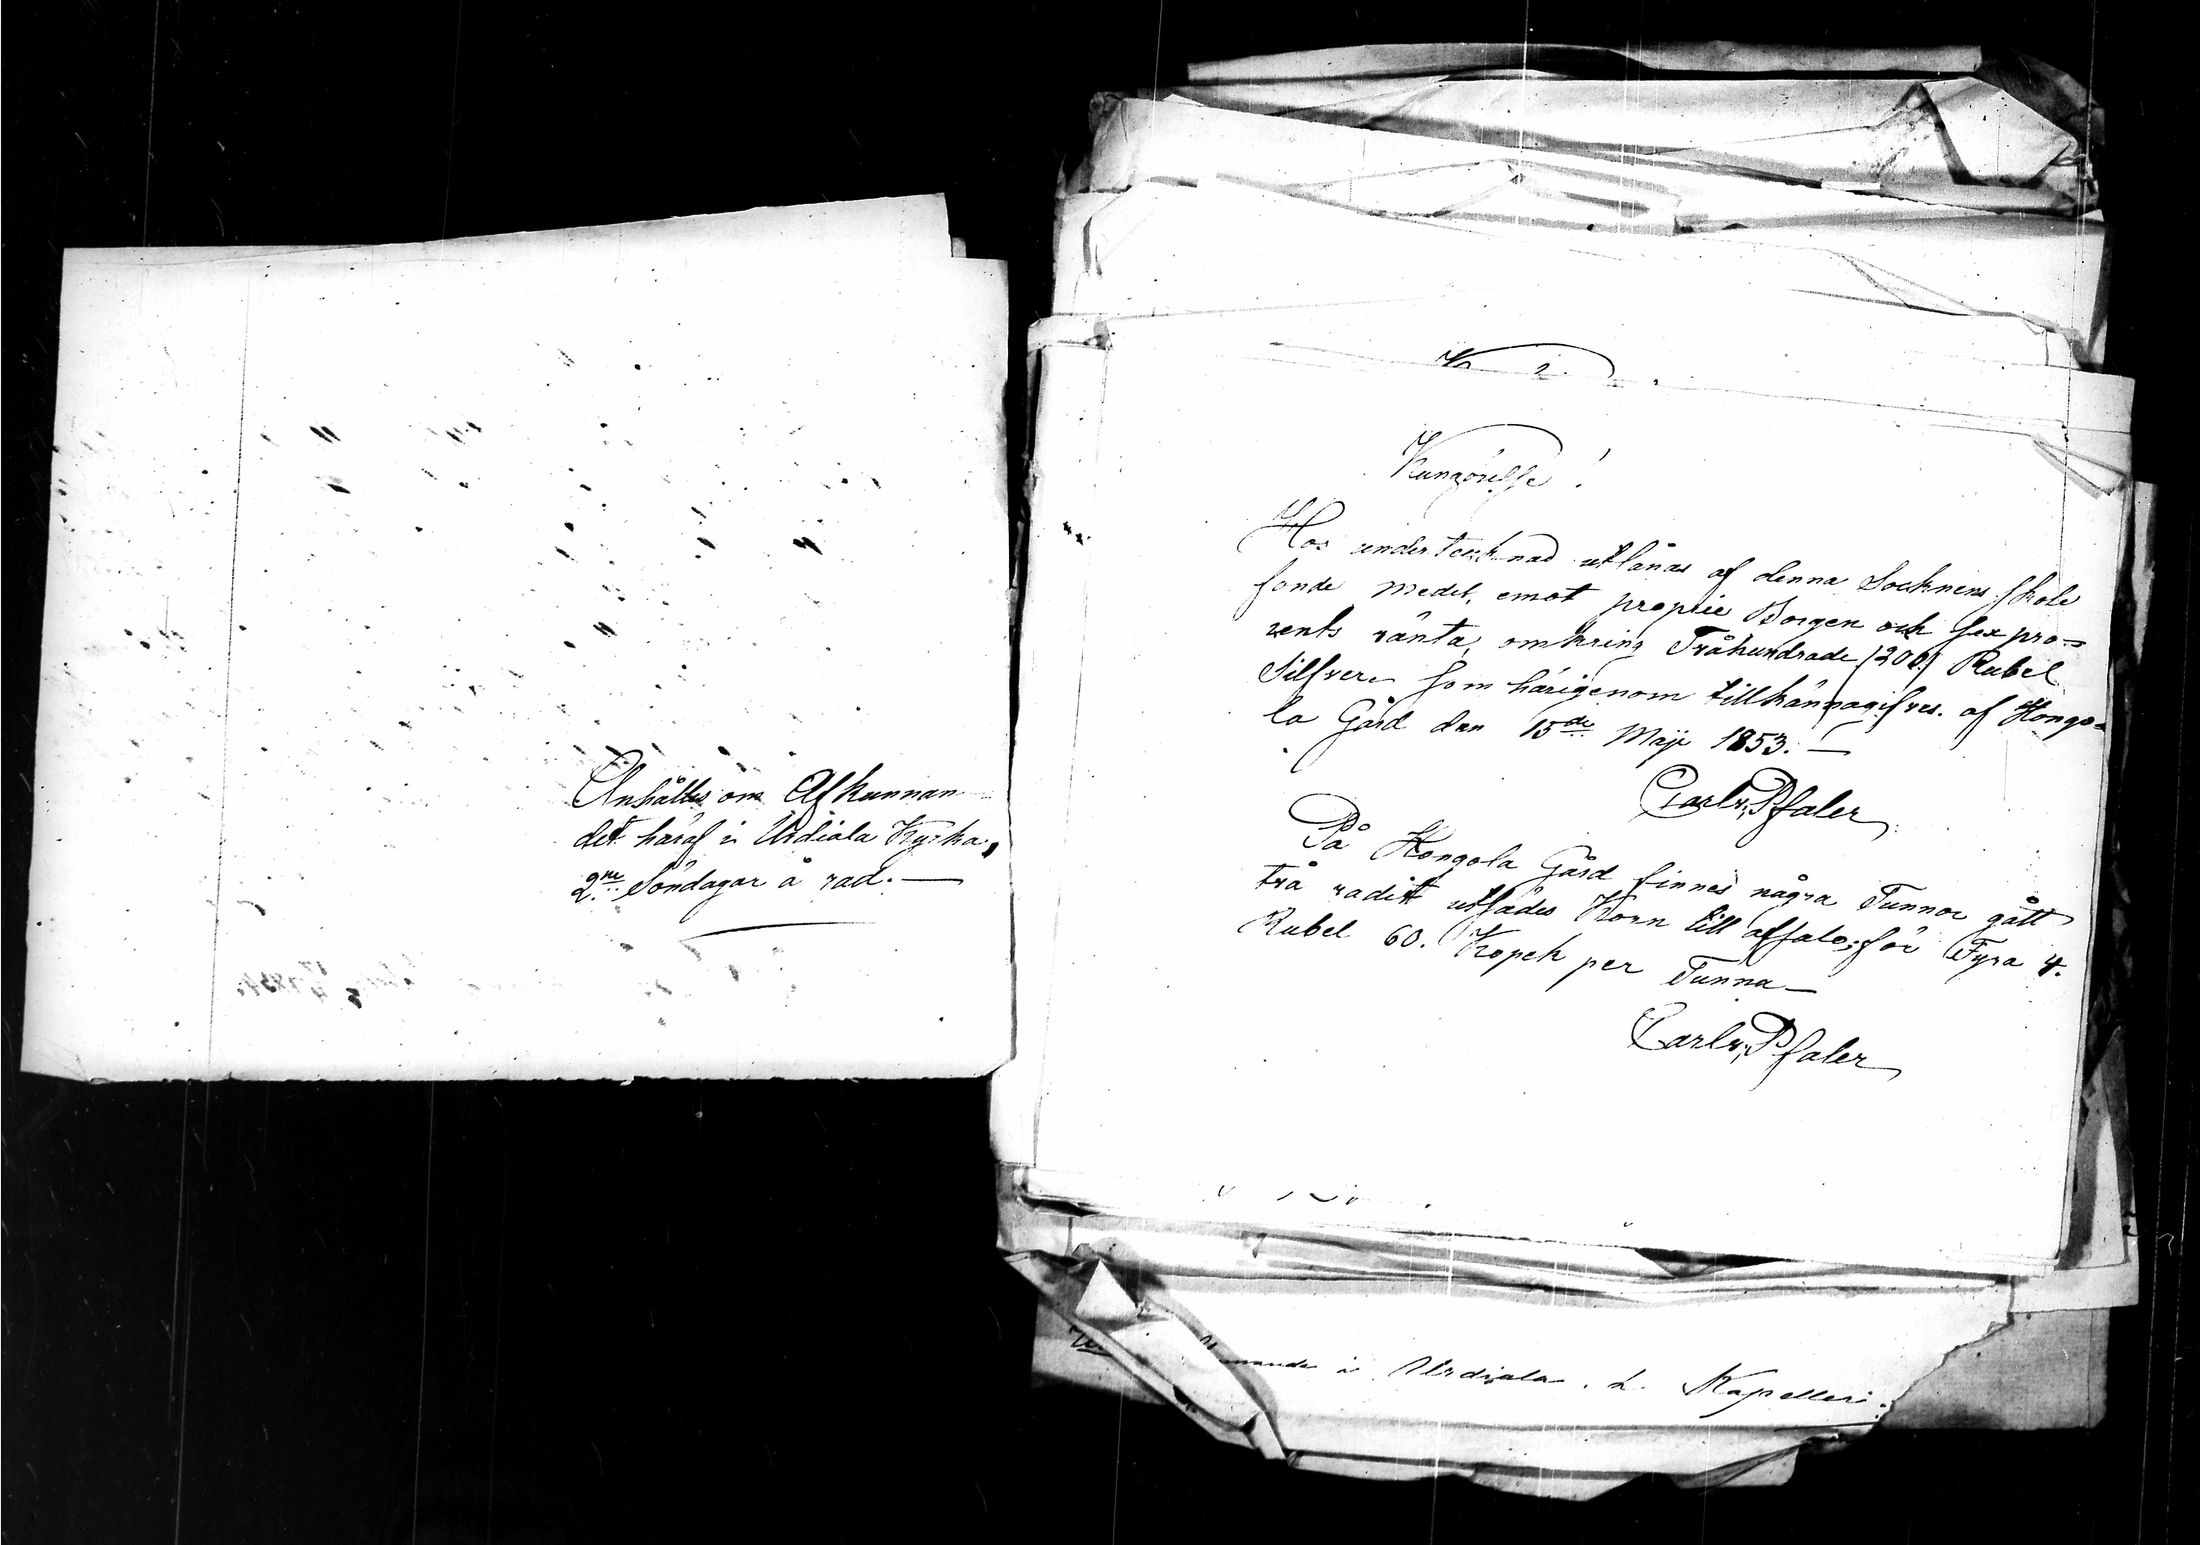 Anhålles om Afkunnan
det häraf i Urdiala Kyrka,
2ne Söndagar å rad. —
Kungörelse!
Hos undertecknad utlånas af denna Socknens skole
fonde medel, emot proprie Borgen och sex pro=
cents ränta, omkring Tvåhundrade (200) Rubel
Silfver som härigenom tillkännagifves. af Hongo=
la Gård den 15de Maji 1853. —
Carl v. Pfaler
På Hongola Gård finnes några Tunnor gått
två radit utsädes Korn till afsalo; för Fyra 4.
Rubel 60. Kopek per Tunna —
Carl v. Pfaler
i Urdiala. Kapelleri.